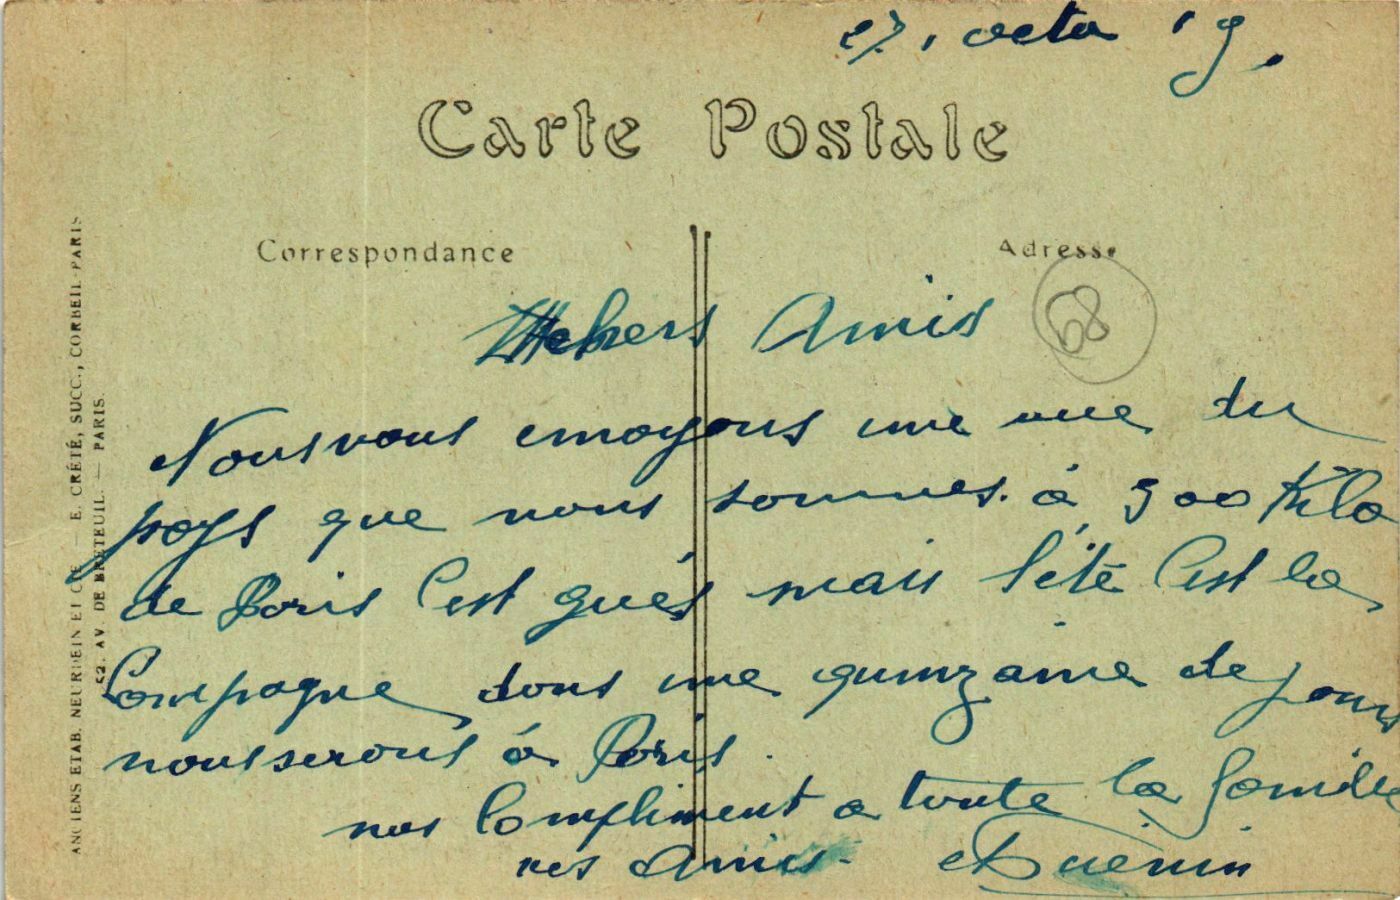 27, octo 19.
Carte Postale
Correspondance
Adresse
68
chers Amis
Nous vous envoyons une vue du
pays que nous sommes. à 500 Kilo
de Paris C'est gués mais l'été C'est la
Compagne dans une quinzaine de jours
nous serons à Paris.
nos Compliment a toute la famille
vos Amis. Guénin
ANCIENS ETAB. NEURDEIN ET CIE — E. CRÉTÉ, SUCC., CORBEIL-PARIS
52, AV. DE BRETEUIL. — PARIS.